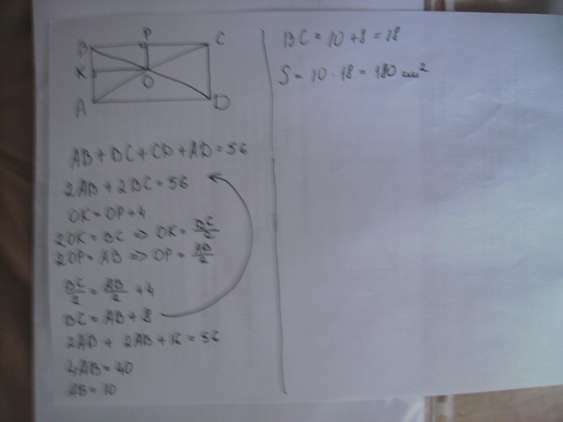 B P C
K O
A D
AB + BC + CD + AD = 56
2AB + 2BC = 56
OK = OP + 4
2OK = BC => OK = BC/2
2OP = AB => OP = AB/2
BC/2 = AB/2 + 4
BC = AB + 8
2AB + 2AB + 16 = 56
4AB = 40
AB = 10
BC = 10 + 8 = 18
S = 10 · 18 = 180 cm²